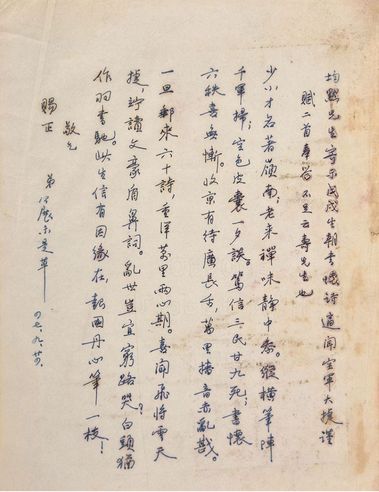 均默先生寄示戊戌生朝書懷詩適聞空軍大捷謹
賦二首奉答不足云壽先生也
少小才名著嶺南;老來禪味靜中參。縱橫筆陣
千軍掃;空色皮囊一夕談。篤信三民甘九死;書懷
六秩喜無慚。收京有待廣長舌,萬里播音赤亂戡。
一旦郵來六十詩,重洋萬里兩心期。喜聞飛將雲天
捷,竚讀文豪盾鼻詞。亂世豈宜窮路哭?白頭猶
作羽書馳。此生信有因緣在,報國丹心筆一枝!
敬乞
賜正
弟 未是草
四七、九、廿四